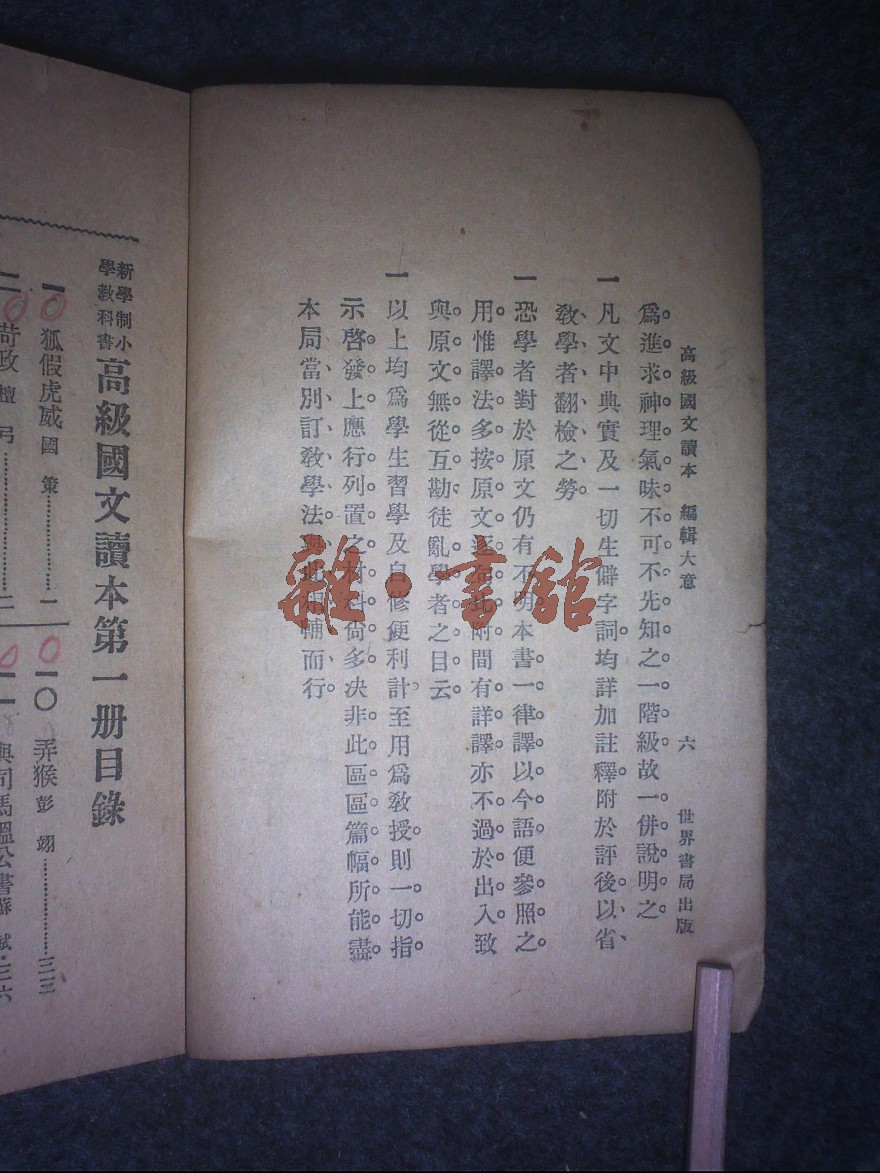 高級國文讀本 編輯大意 六 世界書局出版
爲進求神理氣味不可不先知之一階級故一併說明之
一 凡文中典實及一切生僻字詞均詳加註釋附於評後以省
敎學者翻檢之勞
一 恐學者對於原文仍有不明本書一律譯以今語便參照之
用惟譯法多按原文逐句附間有詳譯亦不過於出入致
與原文無從互勘徒亂學者之目云
一 以上均爲學生習學及自修便利計至用爲敎授則一切指
示啓發上應行列置之材料尙多決非此區區篇幅所能盡
本局當別訂敎學法與此相輔而行
雜·書館
新學制小學敎科書 高級國文讀本第一册目錄
一 狐假虎威 國策 一
一〇 弄猴 彭翊 三三
二 苛政 檀弓 二
一一 與司馬溫公書 蘇軾 三六